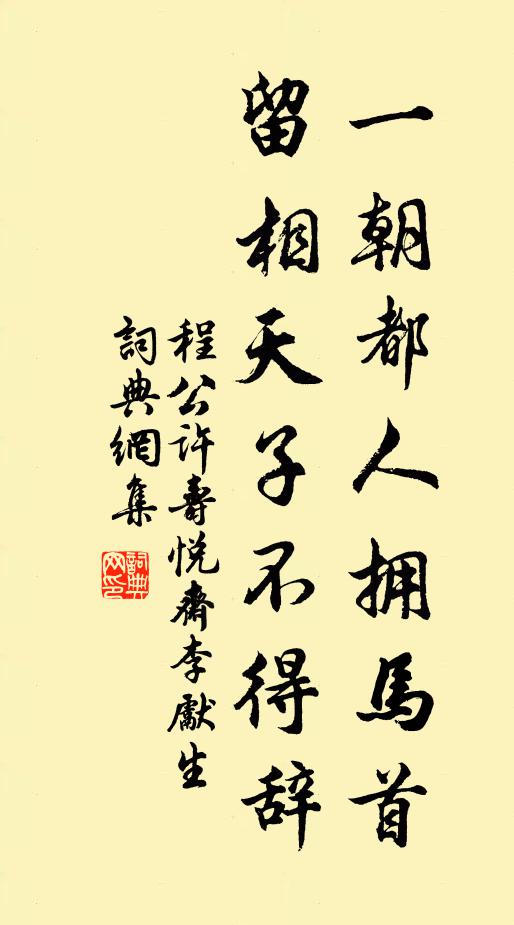 一朝都人拥馬首
留相天子不得辞
程公许壽悦齋李獻生
詞典網集
詞典网印